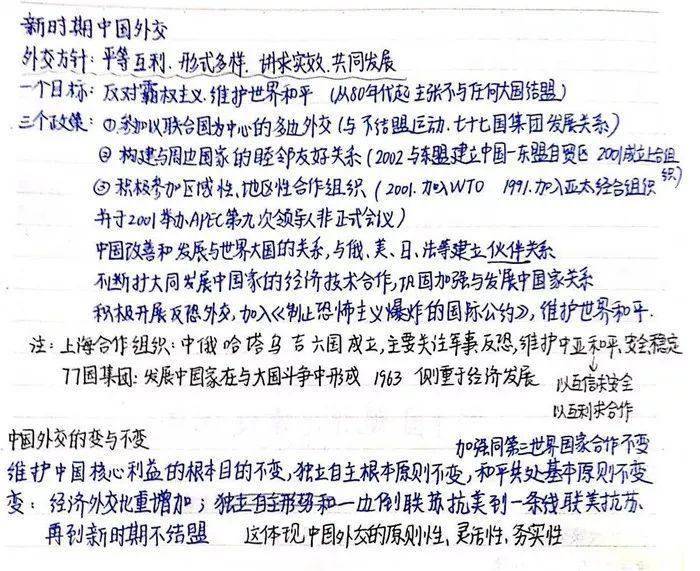 新时期中国外交
外交方针：平等互利、形式多样、讲求实效、共同发展
一个目标：反对霸权主义、维护世界和平（从80年代起主张不与任何大国结盟）
三个政策：①参加以联合国为中心的多边外交（与不结盟运动、七十七国集团发展关系）
②构建与周边国家的睦邻友好关系（2002与东盟建立中国—东盟自贸区 2001成立上合组织）
③积极参加区域性、地区性合作组织（2001.加入WTO 1991.加入亚太经合组织
并于2001举办APEC第九次领导人非正式会议）
中国改善和发展与世界大国的关系,与俄、美、日、法等建立伙伴关系
不断扩大同发展中国家的经济技术合作,巩固加强与发展中国家关系
积极开展反恐外交,加入《制止恐怖主义爆炸的国际公约》,维护世界和平.
注：上海合作组织：中俄哈塔乌吉六国成立,主要关注军事反恐,维护中亚和平、安全稳定
77国集团：发展中国家在与大国斗争中形成 1963 侧重于经济发展
以互信求安全
以互利求合作
中国外交的变与不变
加强同第三世界国家合作不变
维护中国核心利益的根本目的不变,独立自主根本原则不变,和平共处基本原则不变
变：经济外交比重增加；一边倒联苏抗美到一条线联美抗苏.
再到新时期不结盟 这体现中国外交的原则性、灵活性、务实性